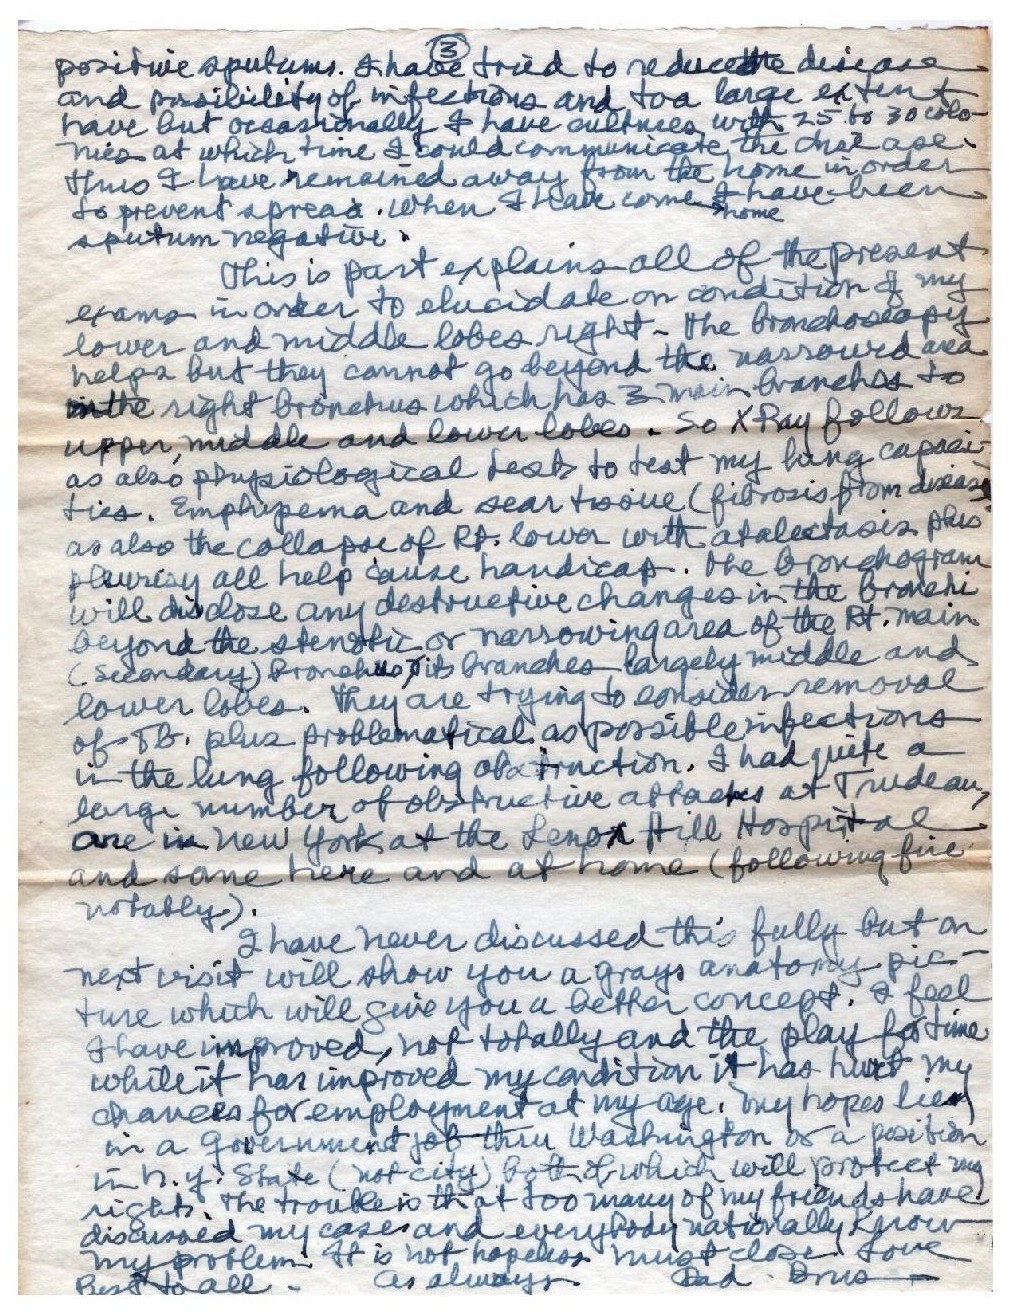 3
positive sputums. I have tried to reduce the disease
and possibility of infections and to a large extent
have but occasionally I have cultures with 25 to 30 colo-
nies at which time I could communicate the disease.
Thus I have remained away from the home in order
to prevent spread. When I have come home I have been
sputum negative.
This is part explains all of the present
exams in order to elucidate on condition of my
lower and middle lobes right - The bronchoscopy
helps but they cannot go beyond the narrowed area
in the right bronchus which has 3 main branches to
upper, middle and lower lobes. So X Ray follows
as also physiological tests to test my lung capaci-
ties. Emphysema and scar tissue (fibrosis from disease
as also the collapse of Rt. lower with atalectasis plus
pleurisy all help cause handicap. The bronchogram
will disclose any destructive changes in the bronchi
beyond the stenotic or narrowing area of the Rt. main
(secondary) bronchus, its branches largely middle and
lower lobes. They are trying to consider removal
of TB. plus problematical as possible infections
in the lung following obstruction. I had quite a
large number of obstructive attacks at Trudeau,
one in New York at the Lenox Hill Hospital
and some here and at home (following fire
notably).
I have never discussed this fully but on
next visit will show you a grays anatomy pic-
ture which will give you a better concept. I feel
I have improved, not totally and the play for time
while it has improved my condition it has hurt my
chances for employment at my age. My hopes lie
in a Government job thru Washington or a position
in N.Y. State (not city) both of which will protect my
rights. The trouble is that too many of my friends have
discussed my case and everybody nationally know
my problem. It is not hopeless. Must close Love
Best to all - As always Dad -